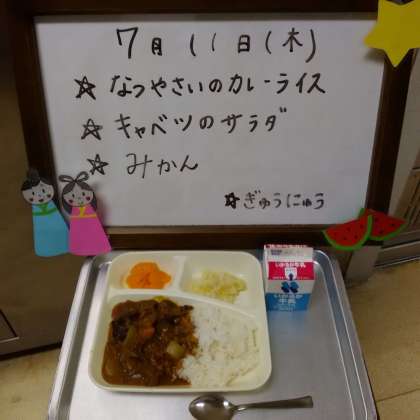 7月11日(木)
☆ なつやさいのカレーライス
☆ キャベツのサラダ
☆ みかん
☆ ぎゅうにゅう
いかるが牛乳
牛乳